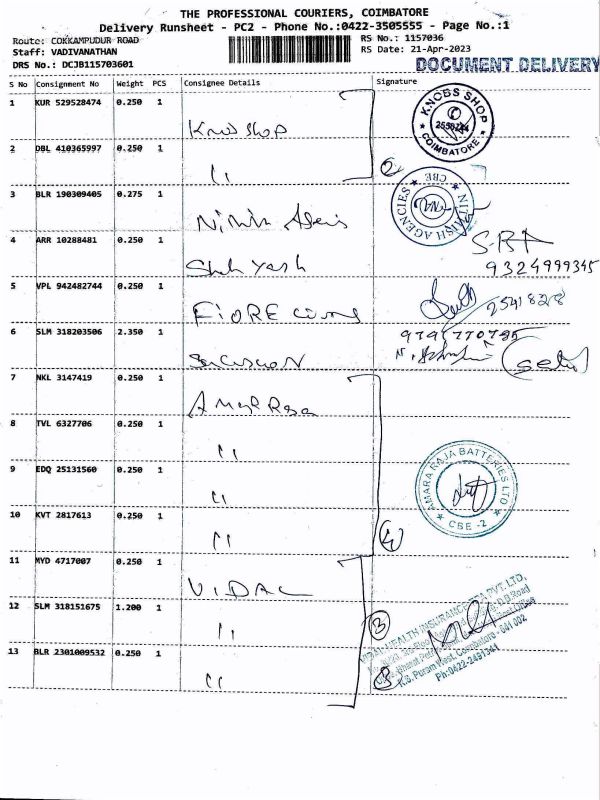 THE PROFESSIONAL COURIERS, COIMBATORE
Delivery Runsheet - PC2 - Phone No.:0422-3505555 - Page No.:1
Route: COKKAMPUDUR ROAD
RS No.: 1157036
Staff: VADIVANATHAN
RS Date: 21-Apr-2023
DRS No.: DCJB115703601
DOCUMENT DELIVERY
S No Consignment No Weight PCS Consignee Details Signature
1 KUR 529528474 0.250 1
Knob Shop
KNOBS SHOP
COIMBATORE
2 DBL 410365997 0.250 1
"
2
3 BLR 190309405 0.275 1
NITHISH AGENCIES
CBE
4 ARR 10288481 0.250 1
Shah Yash
9324999345
5 VPL 942482744 0.250 1
FiORE
9541828
6 SLM 318203506 2.350 1
7 NKL 3147419 0.250 1
Amar Raja
8 TVL 6327706 0.250 1
"
9 EDQ 25131560 0.250 1
"
AMARA RAJA BATTERIES LTD
CBE -2
10 KVT 2817613 0.250 1
"
4
11 MYD 4717007 0.250 1
VIDAL
12 SLM 318151675 1.200 1
"
3
VIDAL HEALTH INSURANCE TPA PVT. LTD,
D.B.Road
R.S. Puram West, Coimbatore - 641 002
Ph:0422-2491341
13 BLR 2301009532 0.250 1
"
3